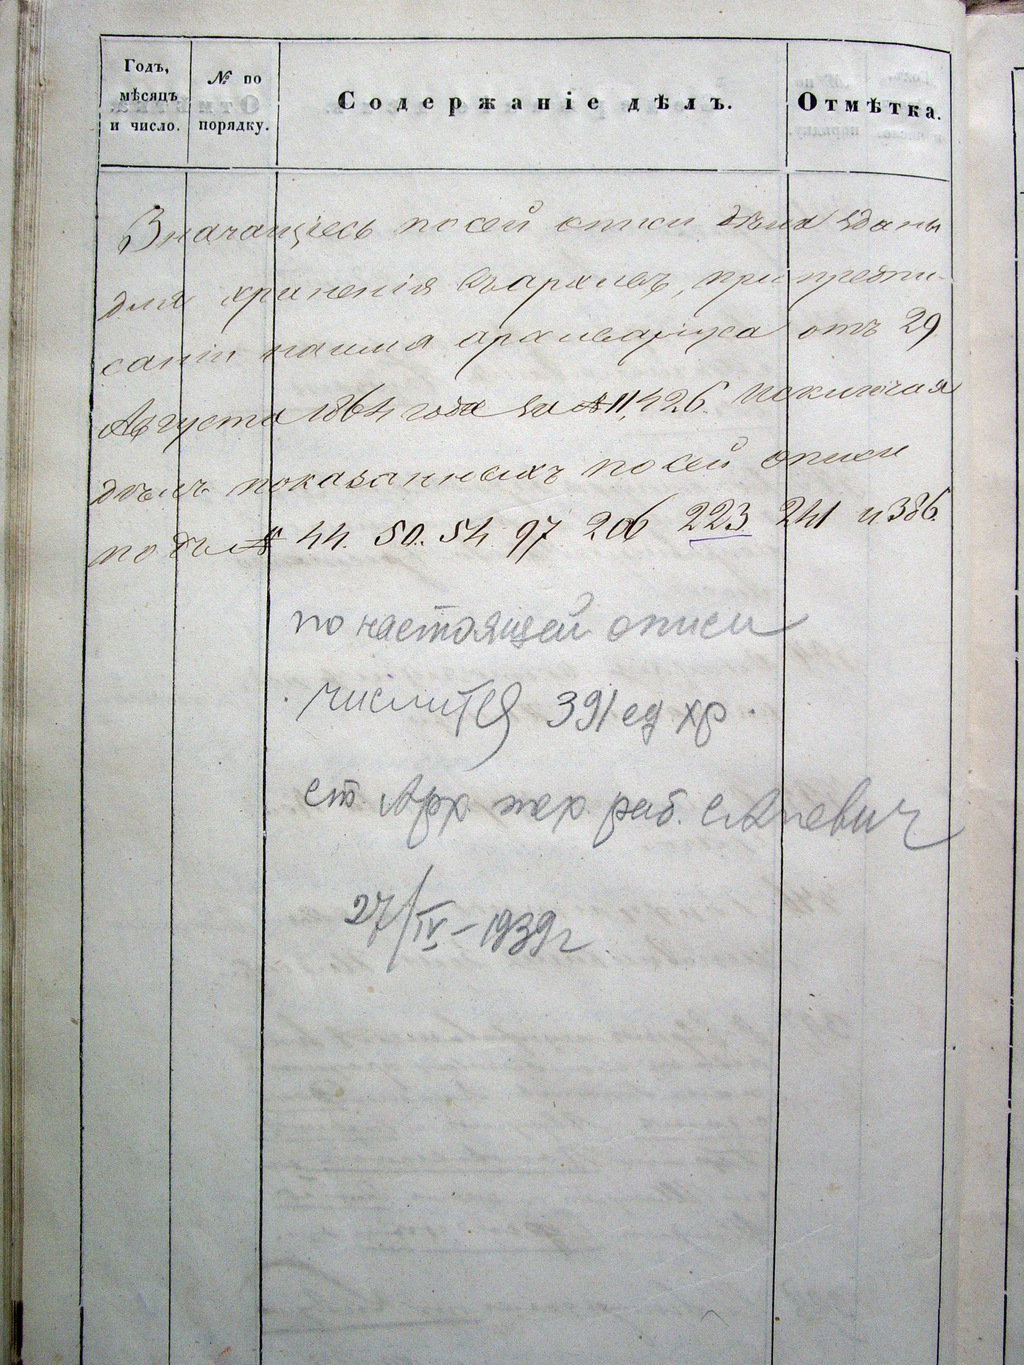 Годъ,
мѣсяцъ
и число.
№ по
порядку.
Содержаніе дѣлъ.
Отмѣтка.
Значащіесь по сей описи дѣла сданы
для храненія въ архивъ, при предпи-
саніи на имя архиваріуса отъ 29
Августа 1864 года за № 11,426. исключая
дѣлъ показанныхъ по сей описи
подъ № 44. 50. 54. 97 206 223 241 и 386.
по настоящей описи
числится 391 ед хр.
ст Арх тех. раб.
27/IV – 1939 г.